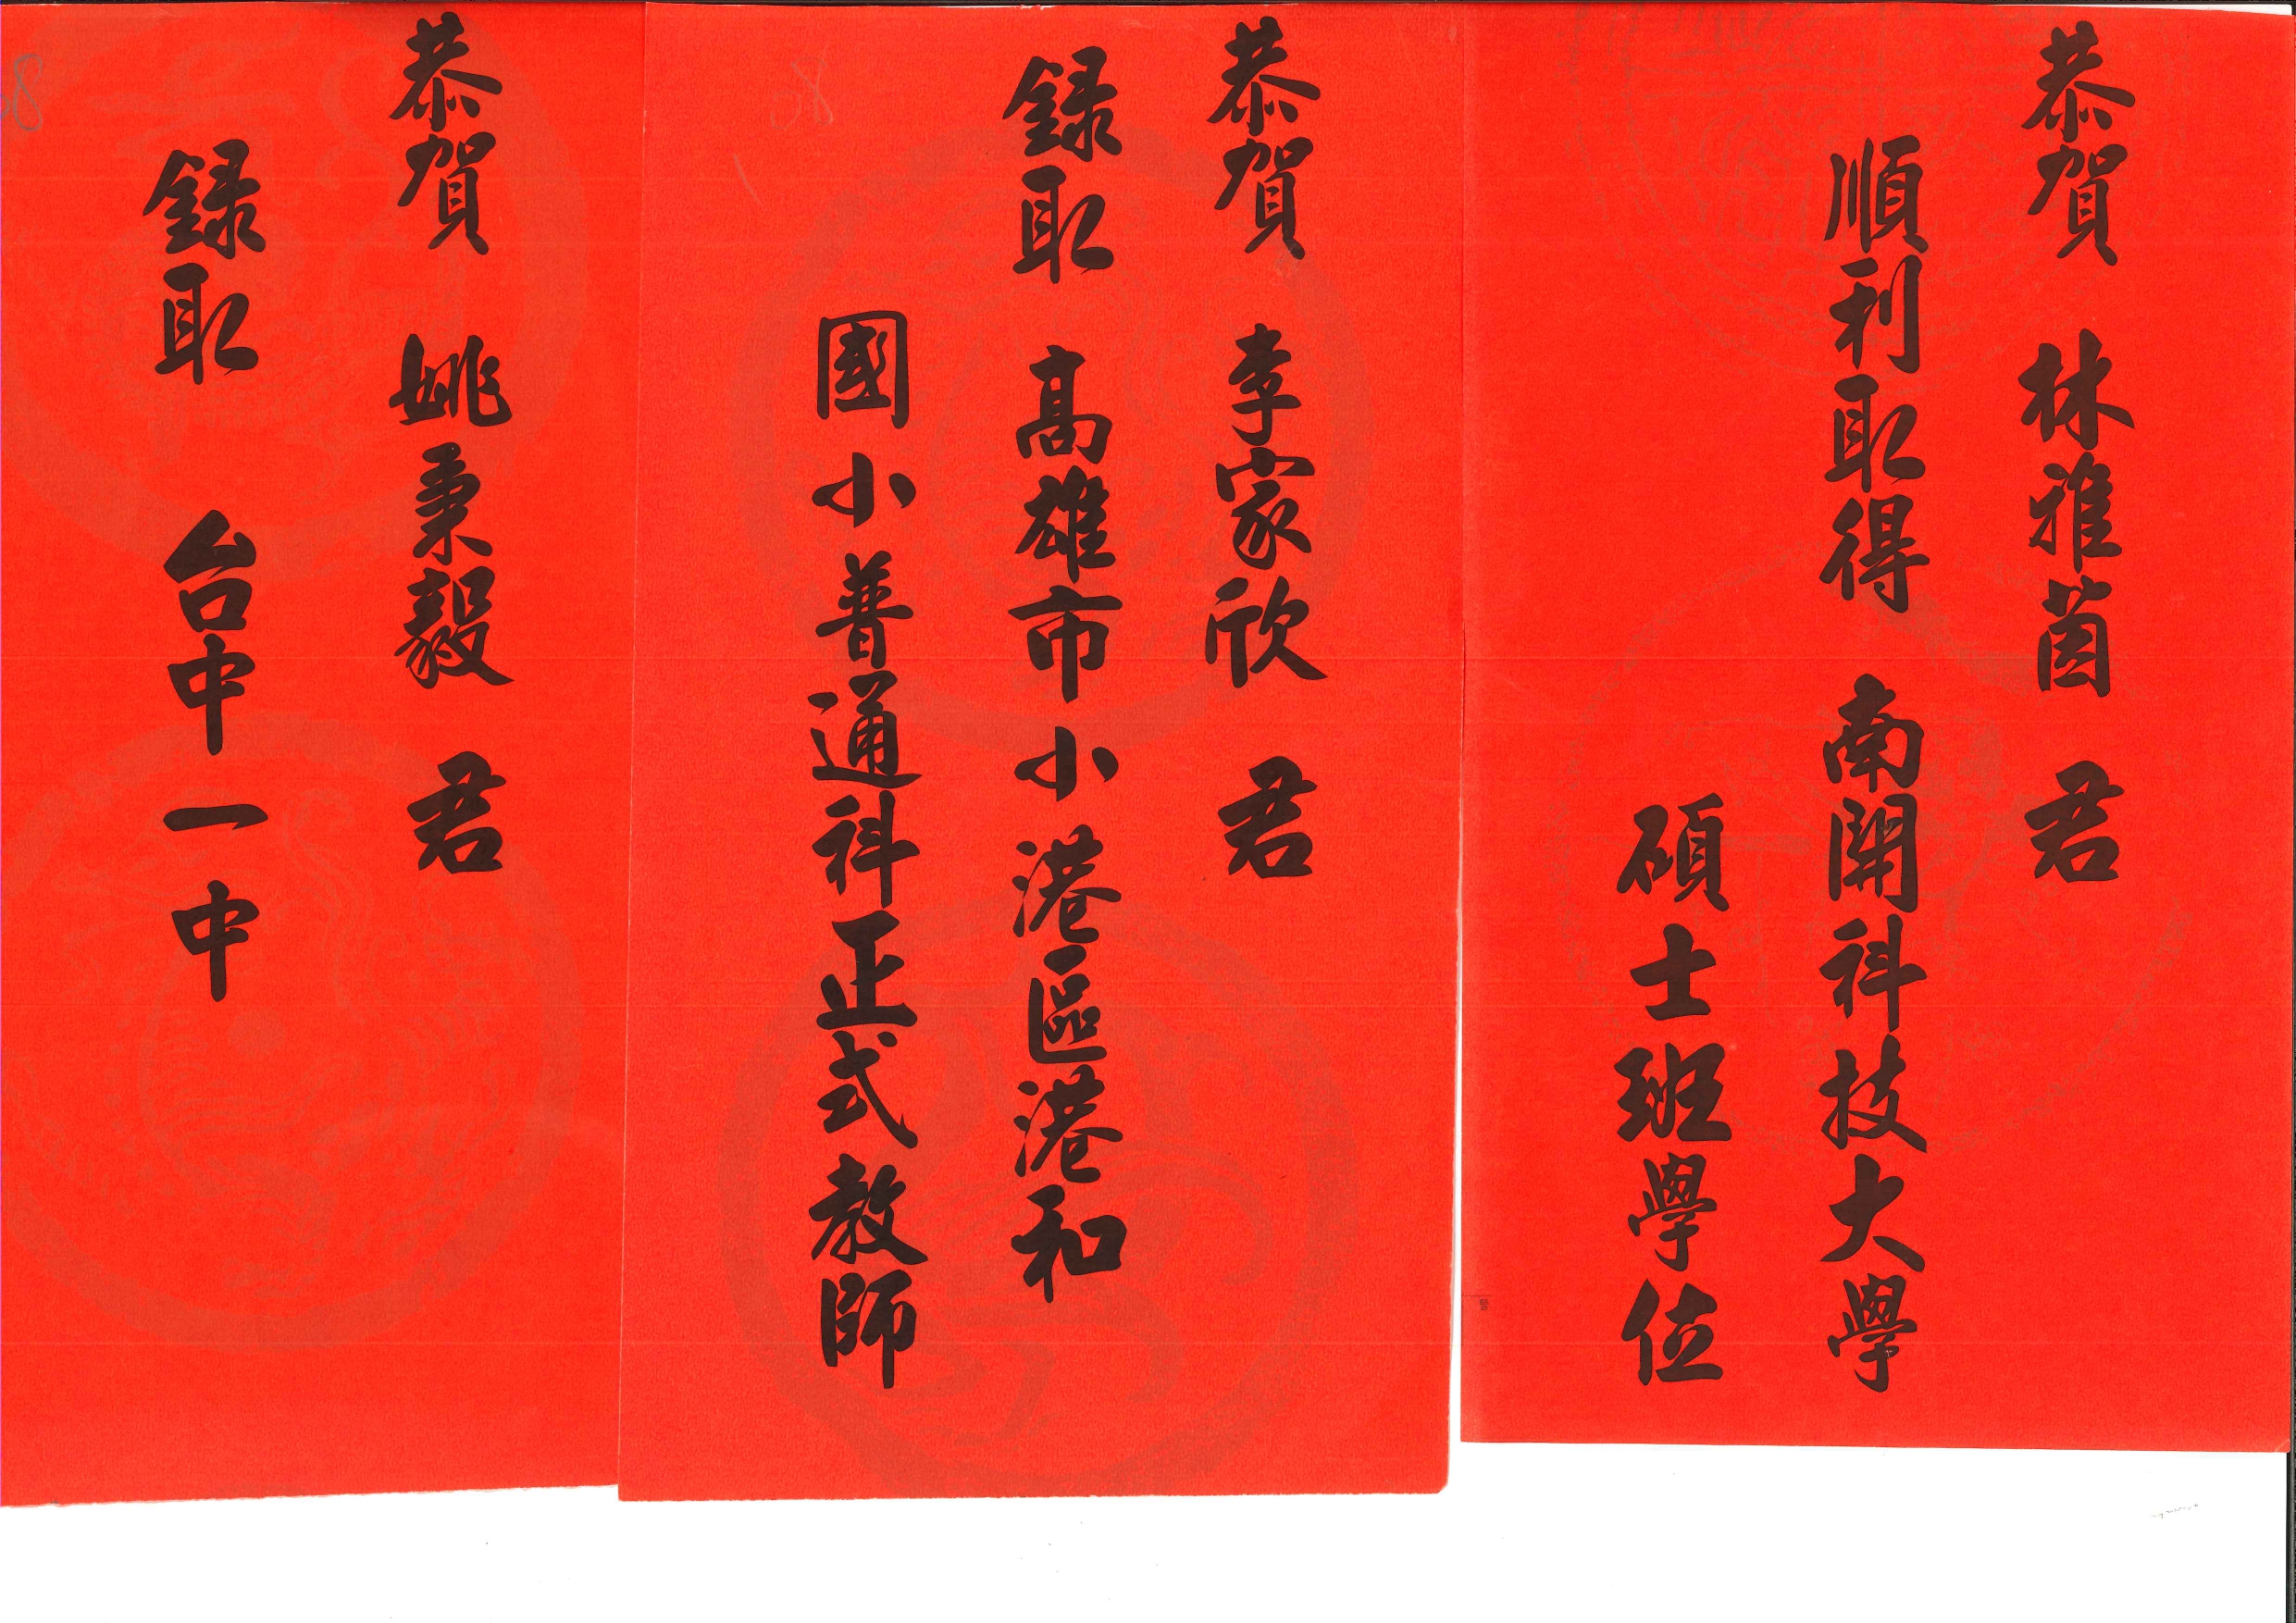 恭賀 林雅茵 君
順利取得 南開科技大學
碩士班學位
恭賀 李家欣 君
錄取 高雄市小港區港和
國小普通科正式教師
恭賀 姚秉毅 君
錄取 台中一中